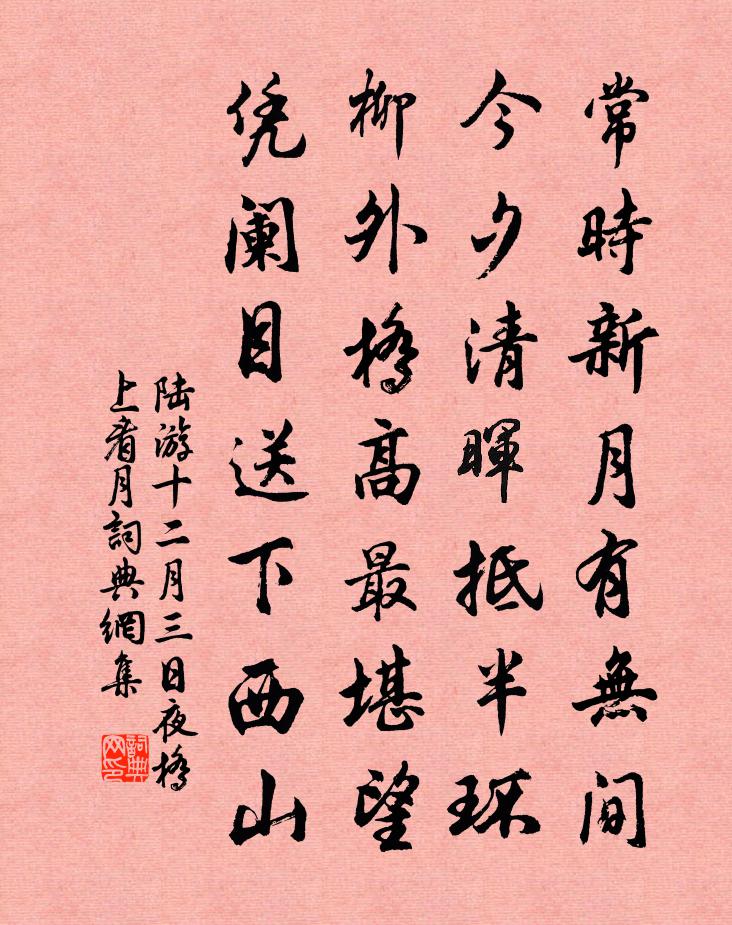 常時新月有無间
今夕清暉抵半环
柳外橋高最堪望
凭阑目送下西山
陆游十二月三日夜橋
上看月詞典網集
詞典
网印